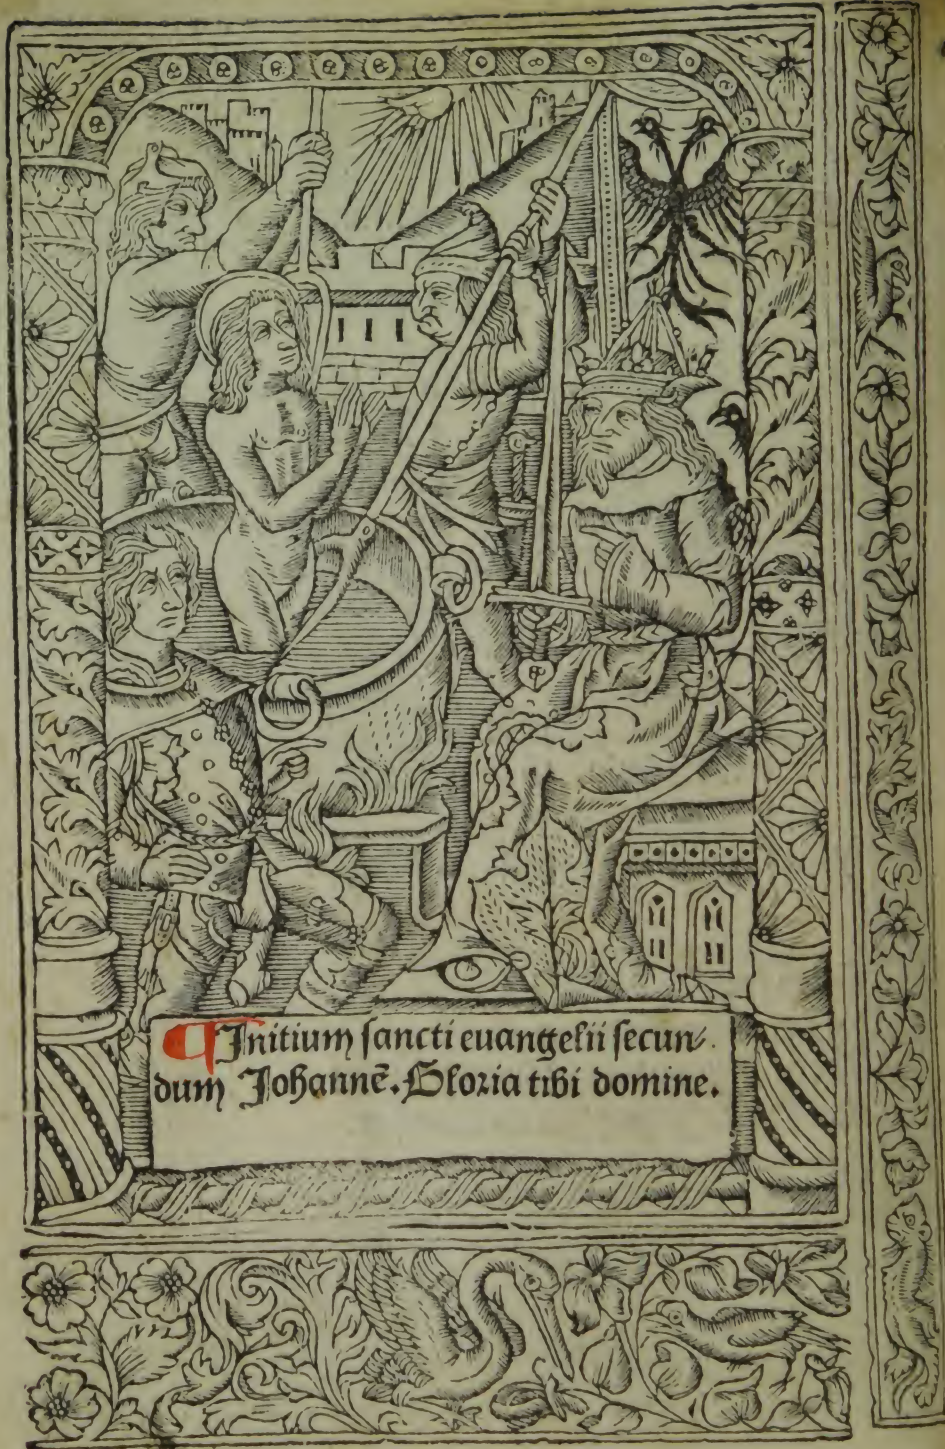 ¶Initium ſancti euangelii ſecun⸗
dum Johannē. Gloria tibi domine.